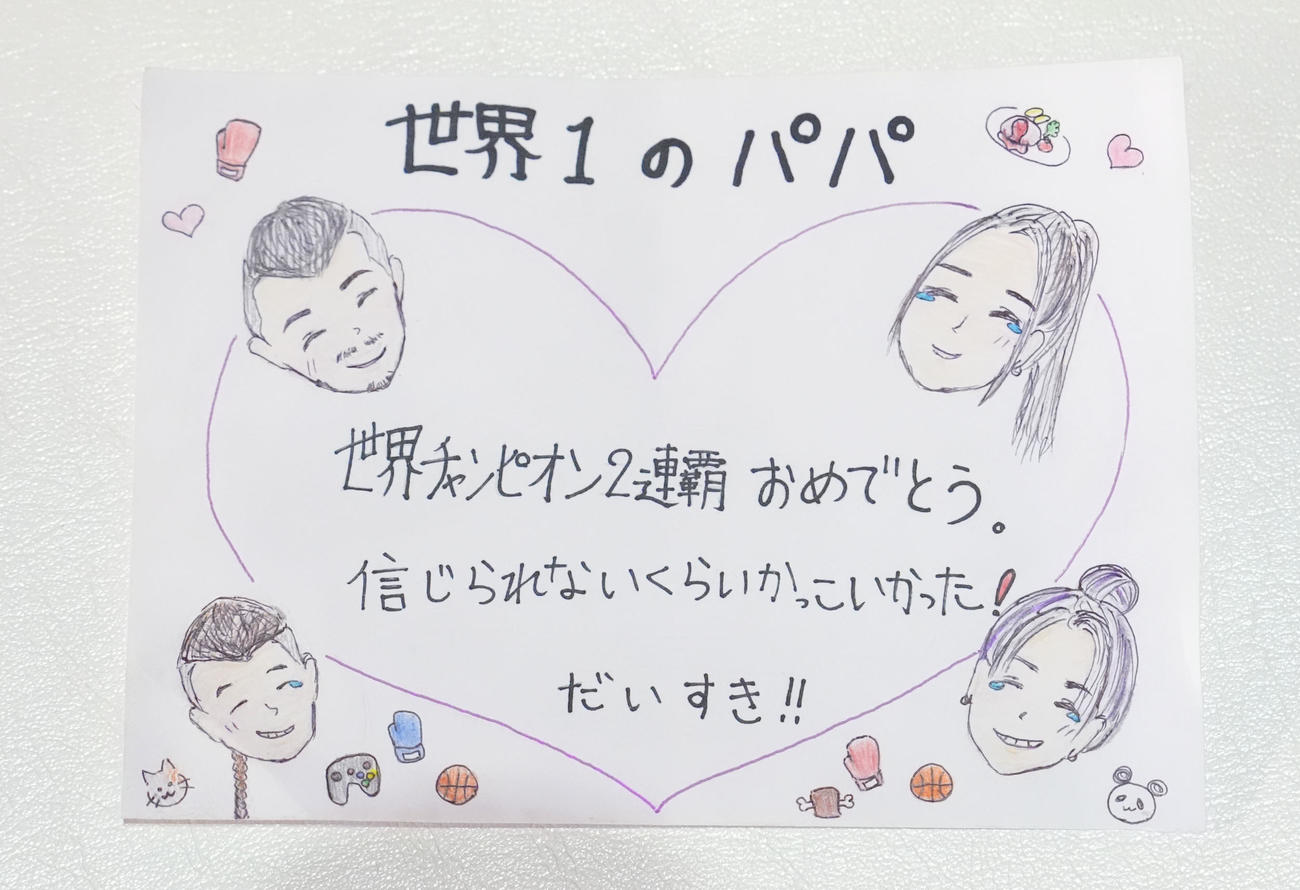 世界1のパパ
世界チャンピオン2連覇 おめでとう。
信じられないくらいかっこいかった!
だいすき!!